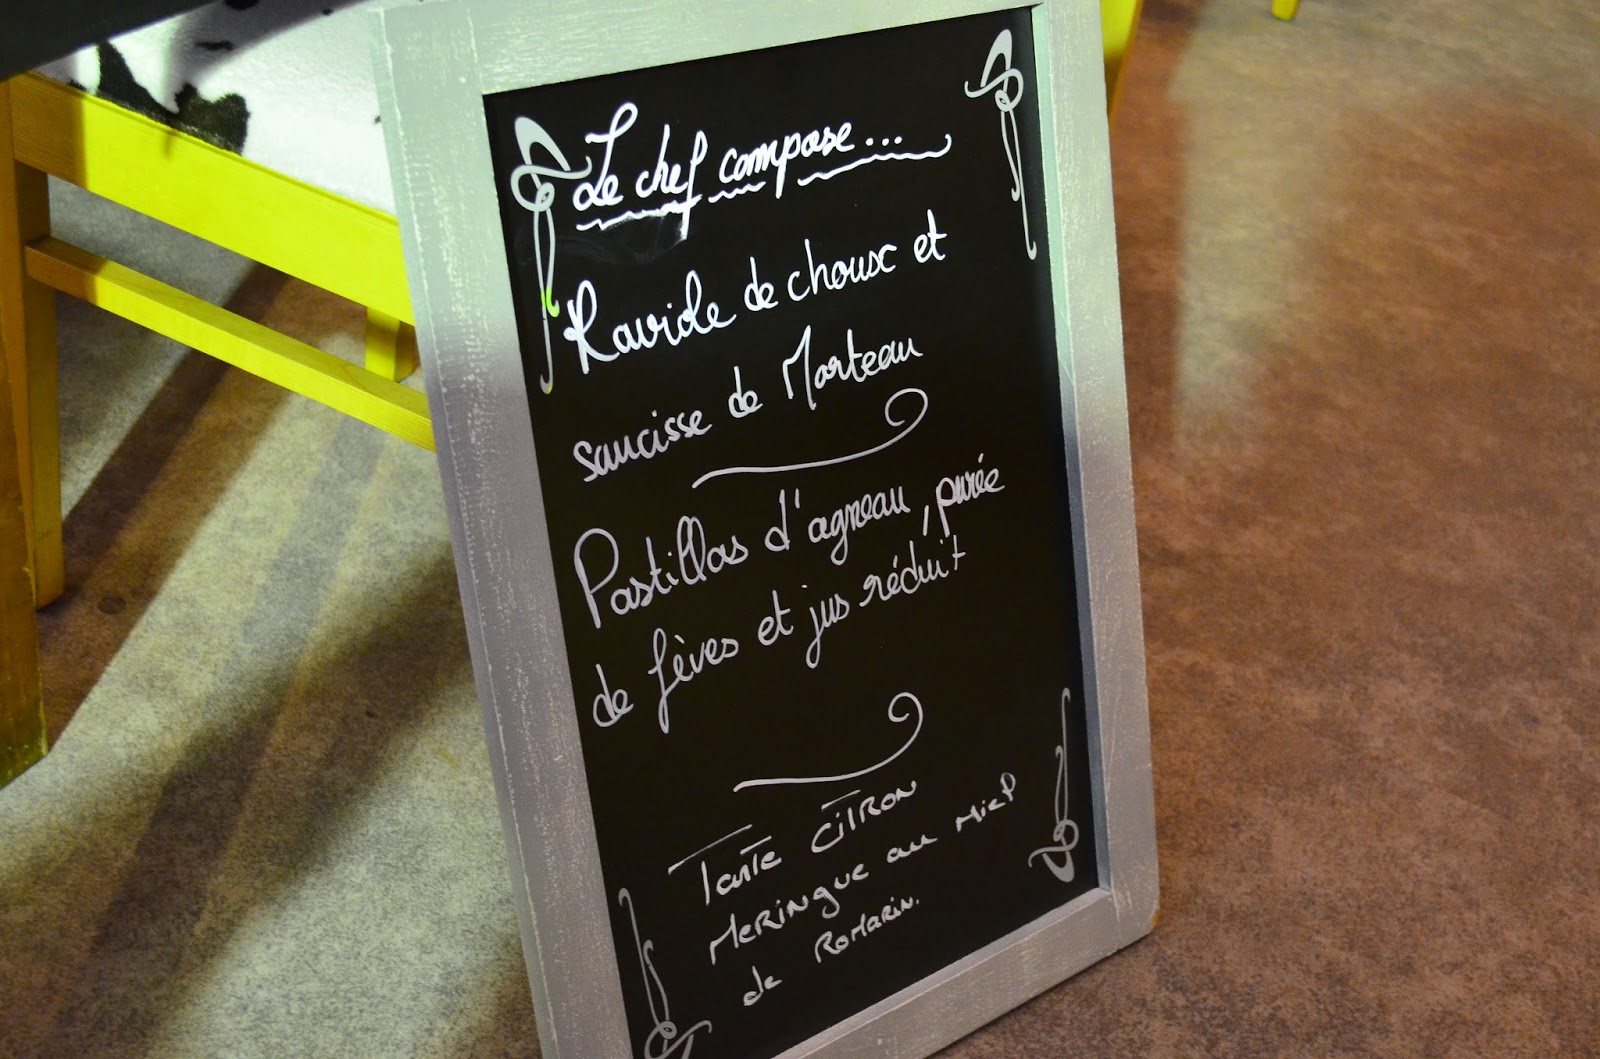 Le chef compose...
Raviole de choux et
saucisse de Morteau
Pastillas d'agneau, purée
de fèves et jus réduit
Tarte Citron
Meringue au Miel
de Romarin.